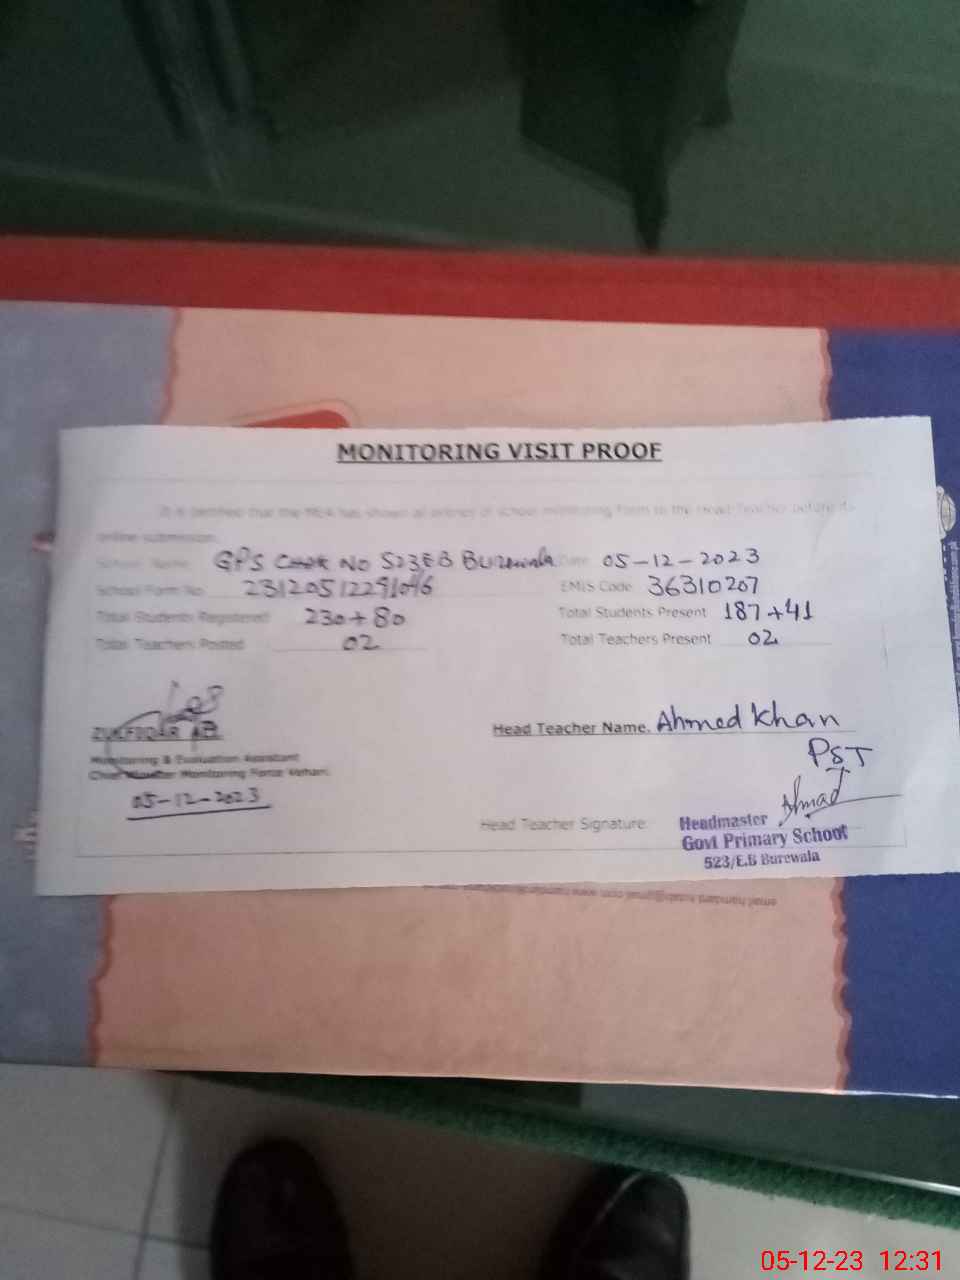 MONITORING VISIT PROOF
It is certified that the MEA has shown all entries of school monitoring form to the Head Teacher before its
online submission.
School Name GPS Chak No 523EB Burewala Date 05-12-2023
School Form No 23120512291046 EMIS Code 36310207
Total Students Registered 230+80 Total Students Present 187+41
Total Teachers Posted 02 Total Teachers Present 02
ZULFIQAR ALI
Monitoring & Evaluation Assistant
Chief Minister Monitoring Force Vehari
05-12-2023
Head Teacher Name. Ahmed Khan
PST
Ahmad
Head Teacher Signature:
Headmaster
Govt Primary School
523/E.B Burewala
05-12-23 12:31